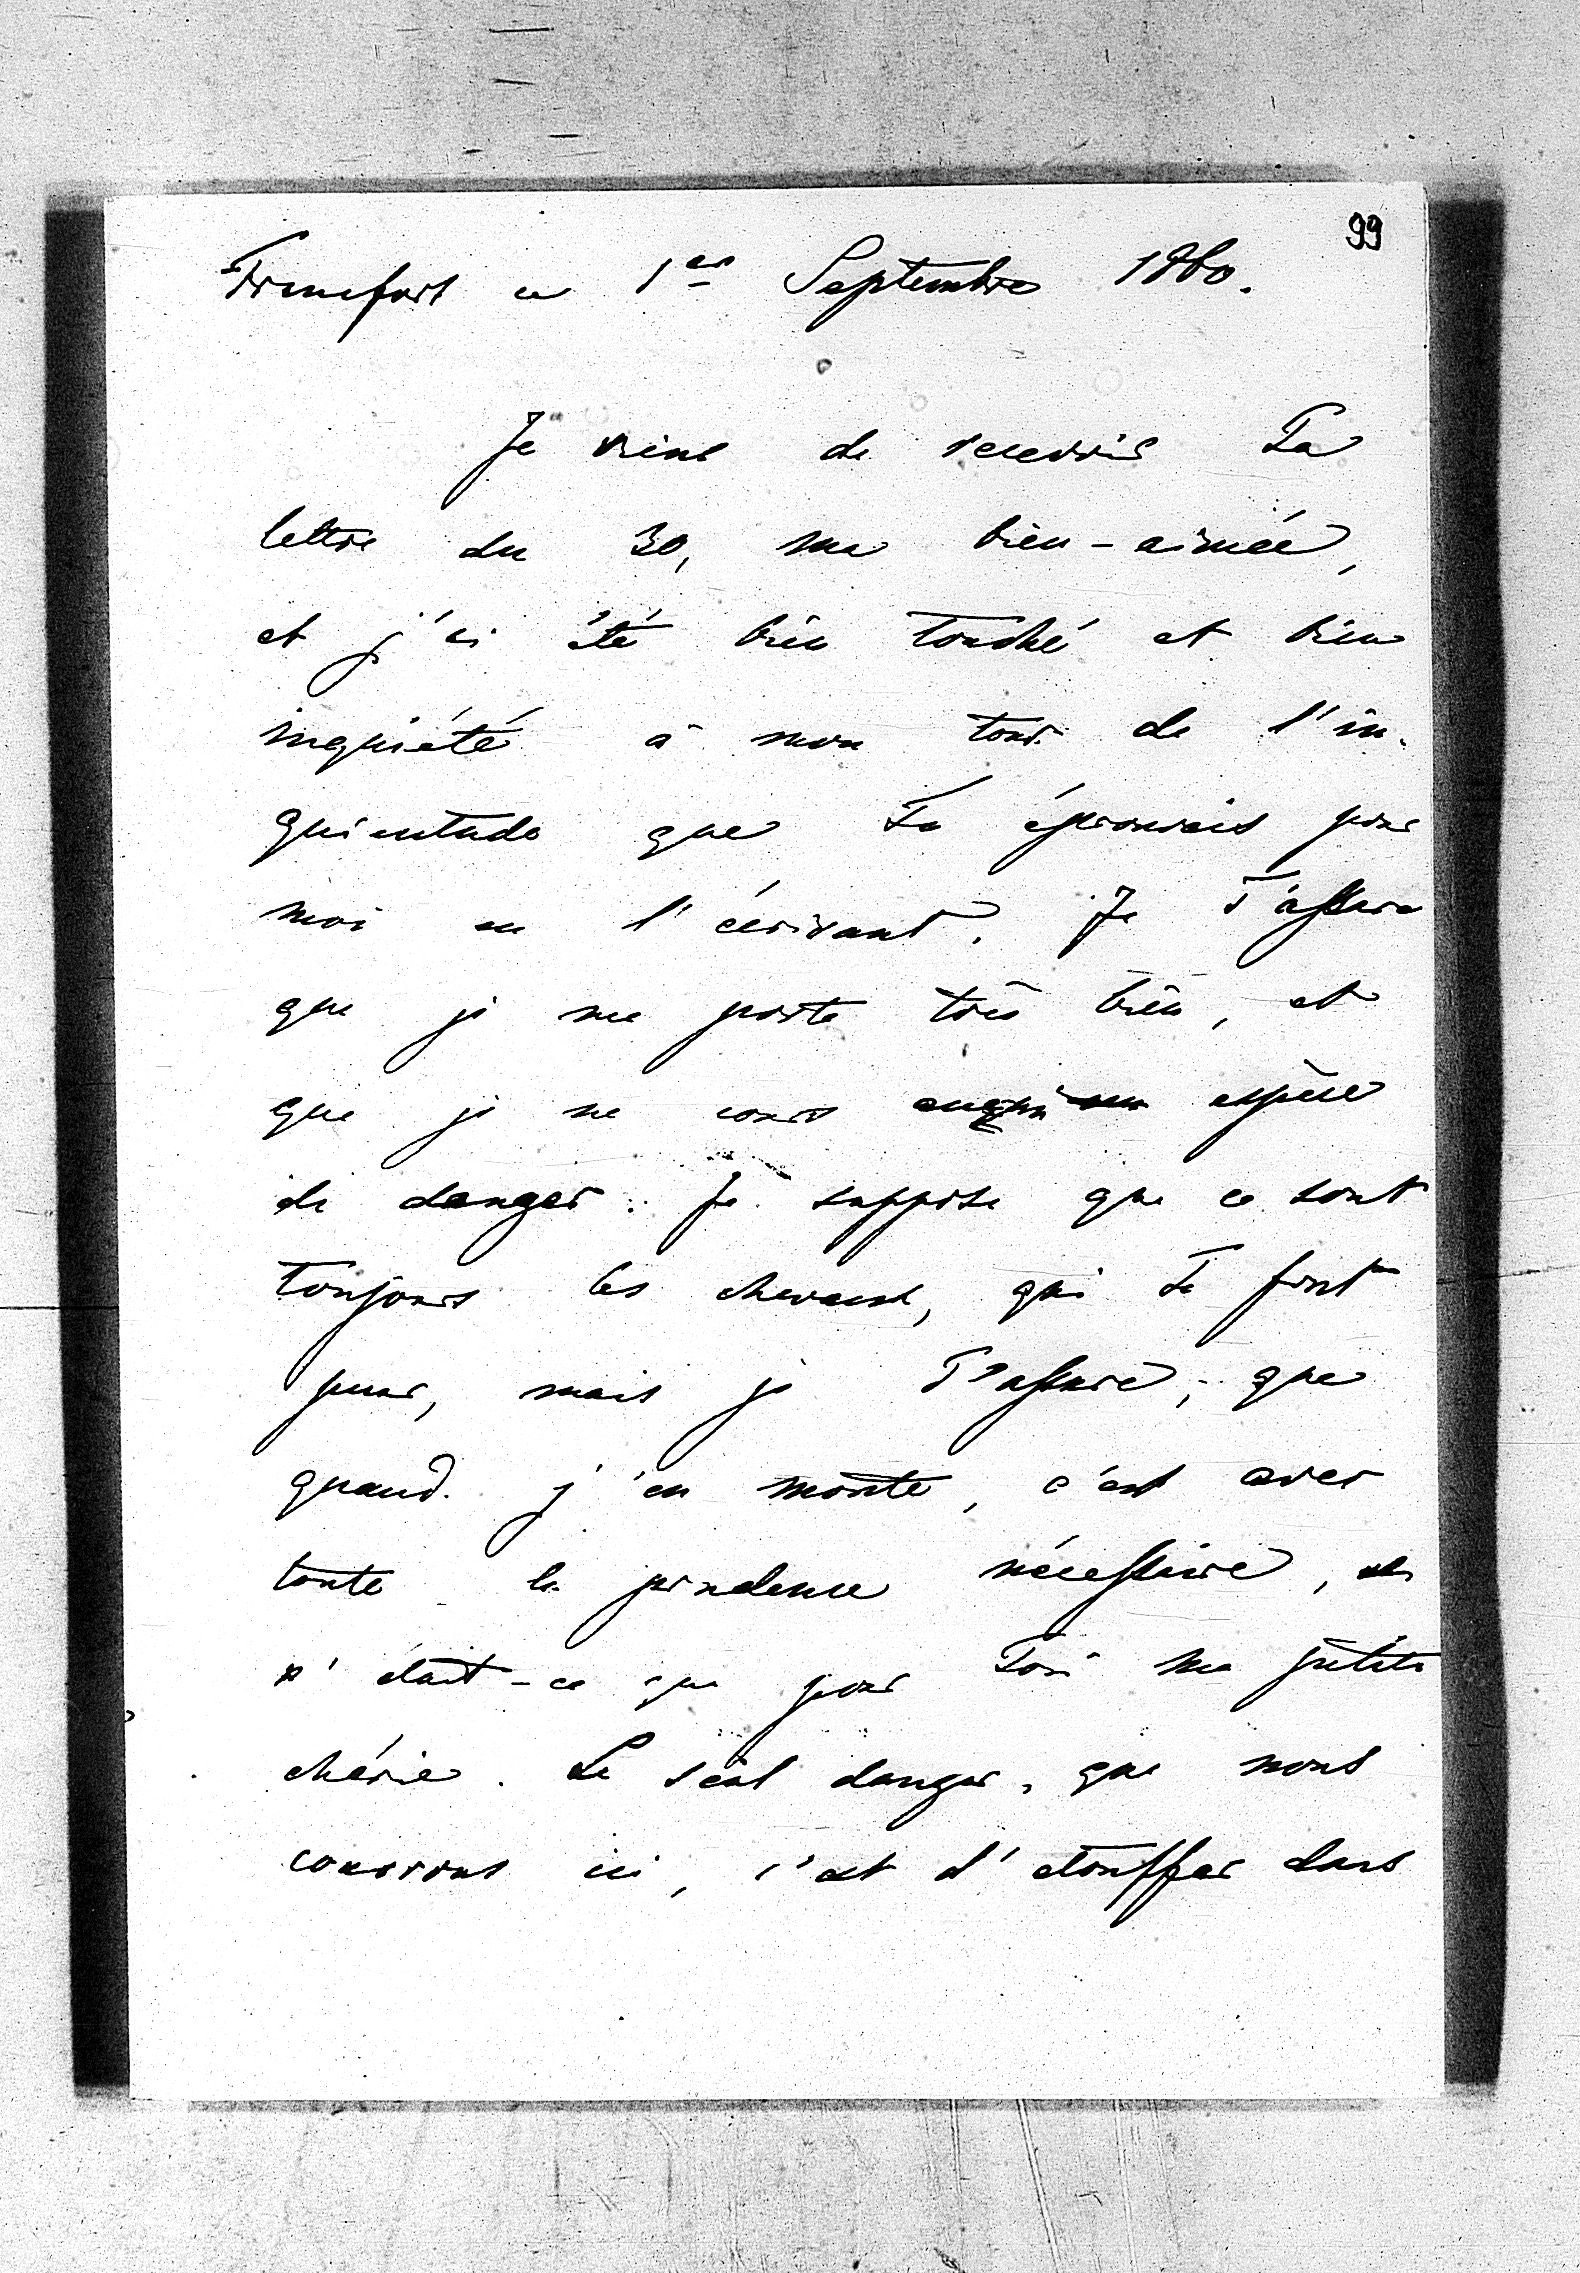 99
Francfort ce 1er Septembre 1860.
Je viens de recevoir Ta
lettre du 30, ma bien-aimée,
et j'ai été bien touché et bien
inquiété à mon tour de l'in-
quietude que Tu éprouvais pour
moi en l'écrivant. Je T'assure
que je me porte très bien, et
que je ne cours espèce
de danger. Je suppose que ce sont
toujours les chevaux, qui Te font
peur, mais je T'assure, que
quand j'en monte, c'est avec
toute la prudence nécessaire,
n'était-ce que pour Toi ma petite
chérie. Le seul danger, que nous
courrons ici, c'est d'étouffer dans